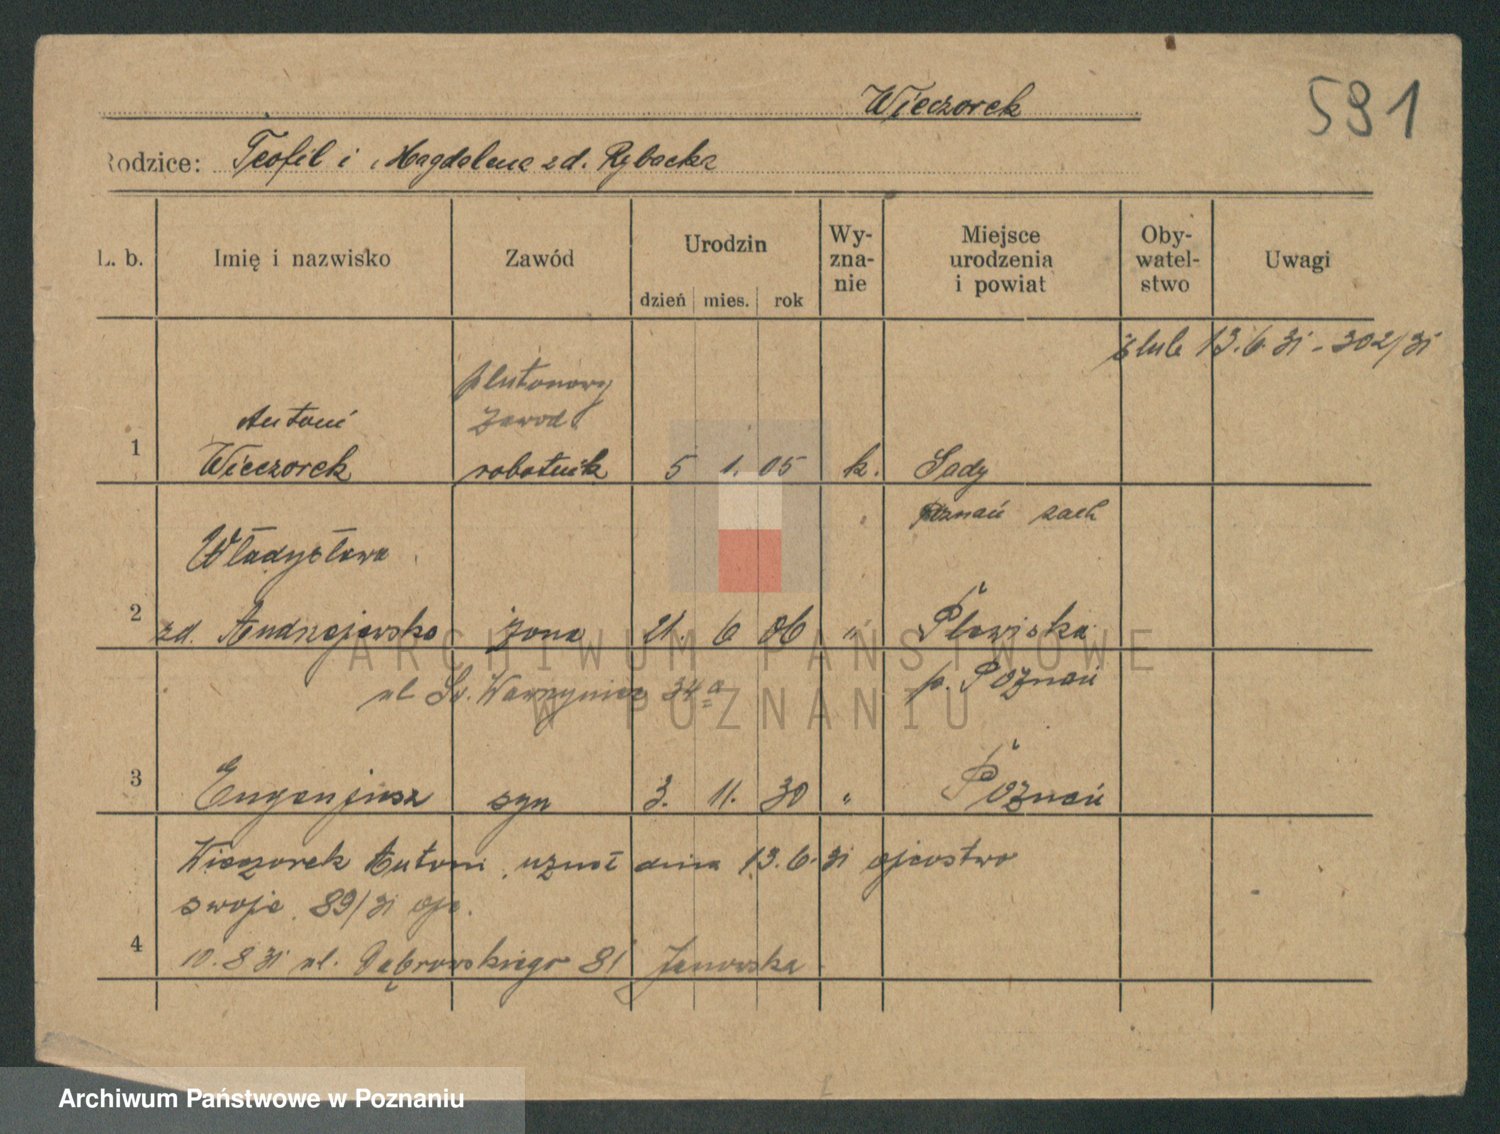 Wieczorek
591
Rodzice: Teofil i Magdalena zd. Rybacka
L. b. Imię i nazwisko Zawód Urodzin dzień mies. rok Wy-zna-nie Miejsce urodzenia i powiat Oby-watel-stwo Uwagi
ślub 13.6.31 - 302/31
plutonowy
zawod.
Antoni
1 Wieczorek robotnik 5 1. 05 k. Sady
Poznań zach
Władysława
2 zd. Andrzejewska żona 21. 6 06 " Plewiska
ul Św. Wawrzyńca 34a p. Poznań
3 Eugenjusz syn 3. 11. 30 " Poznań
Wieczorek Antoni uznał dnia 13.6.31 ojcostwo
swoje 89/31 ojc.
4 10.8 31 ul. Dąbrowskiego 81 Janowska
ARCHIWUM PAŃSTWOWE
W POZNANIU
Archiwum Państwowe w Poznaniu